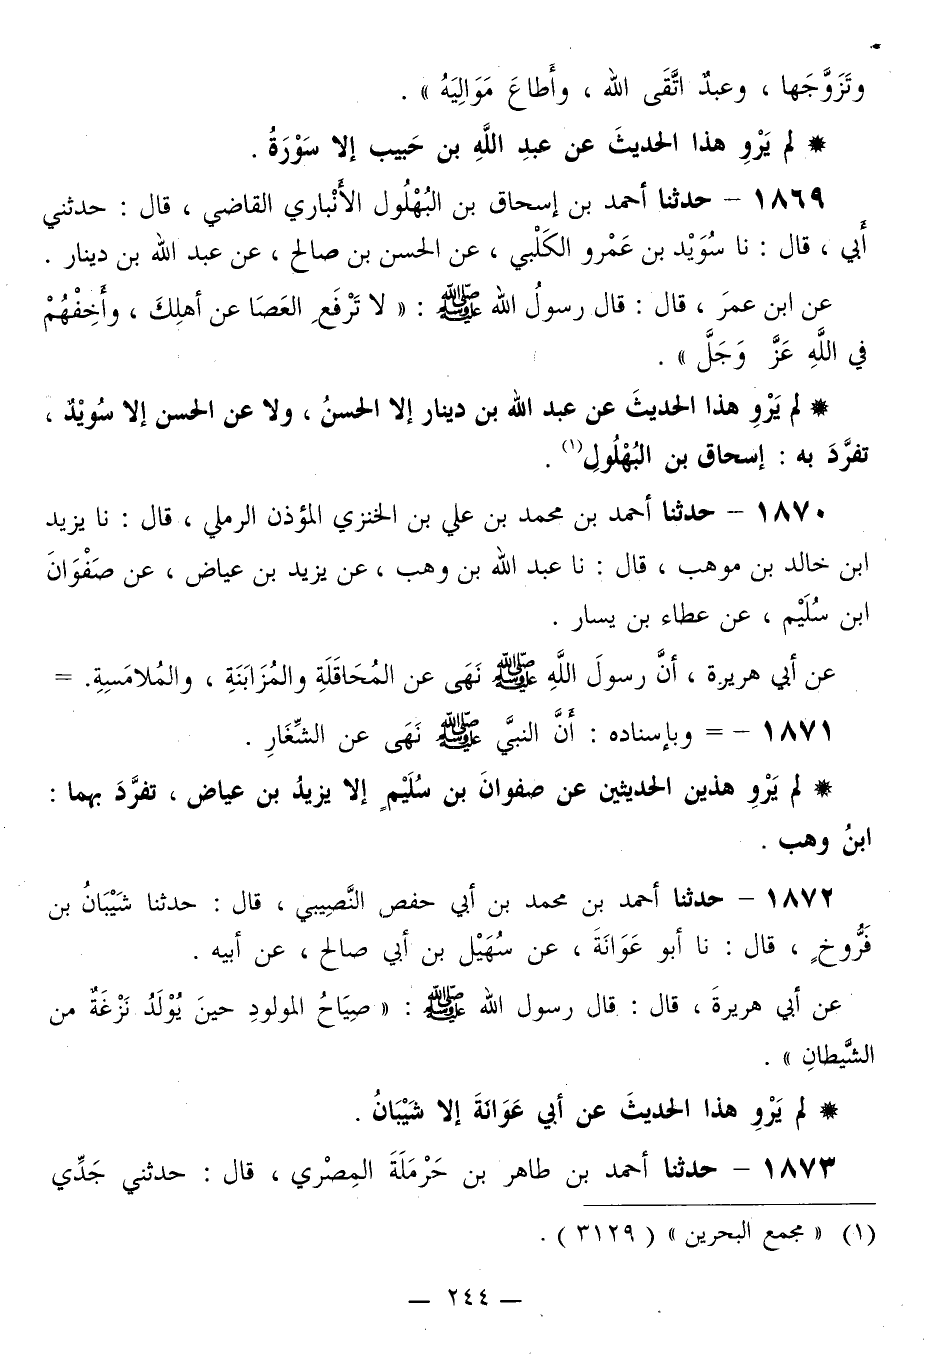 وتَزَوَّجَها ، وعبدٌ اتَّقَى الله ، وأَطاعَ مَوَالِيَهُ » .
* لم يَرْوِ هذا الحديثَ عن عبدِ اللَّهِ بن حَبيب إلا سَوْرَةُ .
١٨٦٩ – حدثنا أحمد بن إسحاق بن البُهْلُول الأَنْباري القاضي ، قال : حدثني
أَبي ، قال : نا سُوَيْد بن عَمْرو الكَلْبي ، عن الحسن بن صالح ، عن عبد الله بن دينار .
عن ابن عمرَ ، قال : قال رسولُ الله ﷺ : « لا تَرْفَعِ العَصَا عن أهلِكَ ، وأَخِفْهُمْ
في اللَّهِ عَزَّ وَجَلَّ » .
* لم يَرْوِ هذا الحديثَ عن عبد الله بن دينار إلا الحسنُ ، ولا عن الحسن إلا سُويْدٌ ،
تفرَّدَ به : إسحاق بن البُهْلُولِ(١) .
١٨٧٠ – حدثنا أحمد بن محمد بن علي بن الخنزي المؤذن الرملي ، قال : نا يزيد
ابن خالد بن موهب ، قال : نا عبد الله بن وهب ، عن يزيد بن عياض ، عن صَفْوَانَ
ابن سُلَيْم ، عن عطاء بن يسار .
عن أبي هريرة ، أنَّ رسولَ اللَّهِ ﷺ نَهَى عن المُحَاقَلَةِ والمُزَابَنَةِ ، والمُلامَسِةِ. =
١٨٧١ – = وبإسناده : أَنَّ النبيَّ ﷺ نَهَى عن الشِّغَارِ .
* لم يَرْوِ هذين الحديثين عن صفوانَ بن سُلَيْمٍ إلا يزيدُ بن عياض ، تفرَّدَ بهما :
ابنُ وهب .
١٨٧٢ – حدثنا أحمد بن محمد بن أبي حفص النَّصِيبي ، قال : حدثنا شَيْبَانُ بن
فَرُّوخٍ ، قال : نا أبو عَوَانَةَ ، عن سُهَيْل بن أبي صالح ، عن أبيه .
عن أبي هريرةَ ، قال : قال رسول الله ﷺ : « صِيَاحُ المولودِ حينَ يُوْلَدُ نَزْغَةٌ من
الشَّيطانِ » .
* لم يَرْوِ هذا الحديثَ عن أبي عَوَانَةَ إلا شَيْبَانُ .
١٨٧٣ – حدثنا أحمد بن طاهر بن حَرْمَلَةَ المِصْري ، قال : حدثني جَدِّي
(١) « مجمع البحرين » ( ٣١٢٩ ) .
— ٢٤٤ —